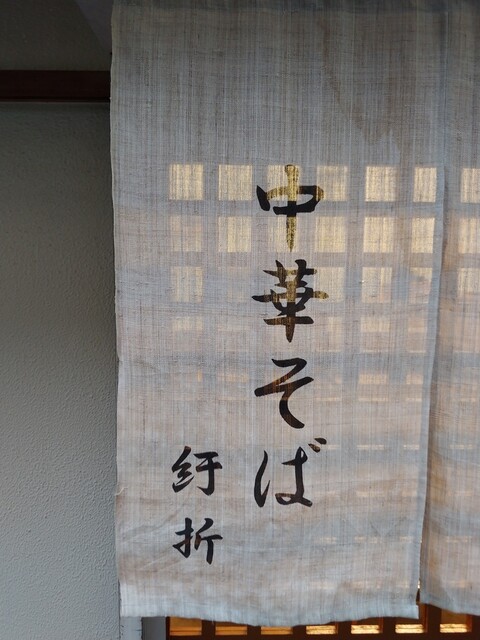 中華そば
紆折